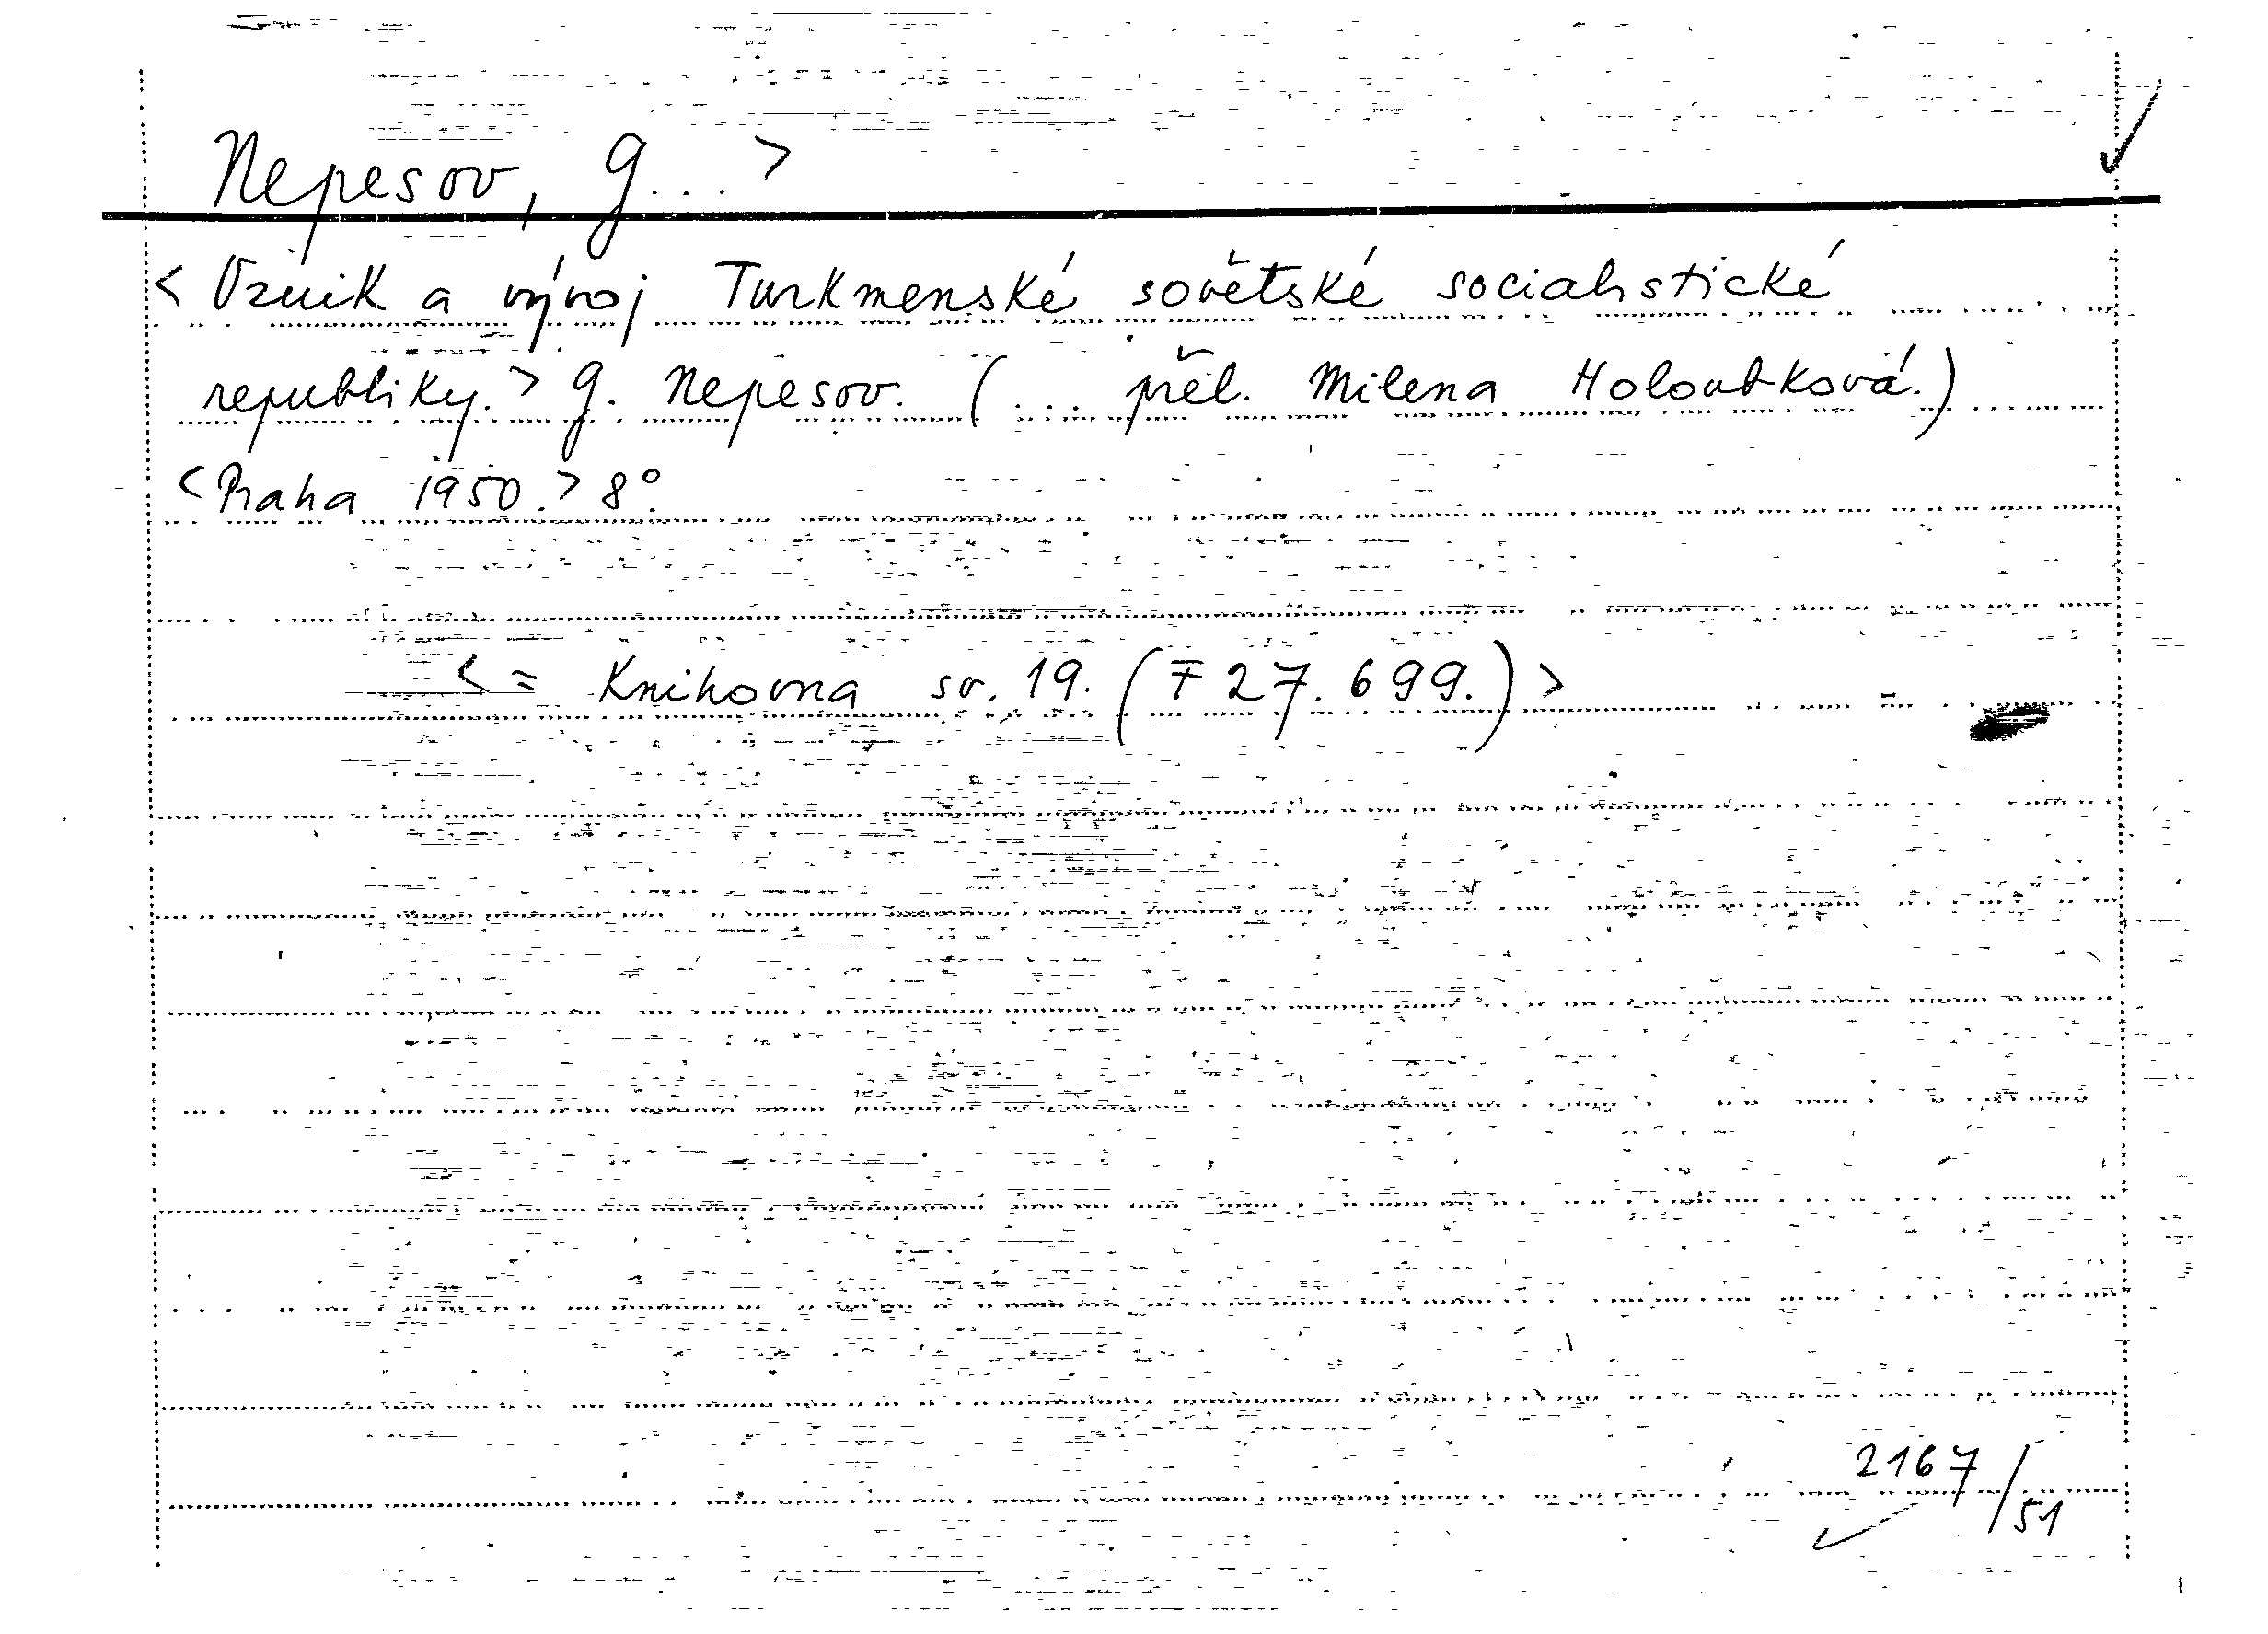 Nepesov, G... >
< Vznik a vývoj Turkmenské sovětské socialistické
republiky. > G. Nepesov. (... přel. Milena Holoubková.)
< Praha 1950. > 8°.
< = Knihovna sv. 19. (F 27.699.) >
2167/51